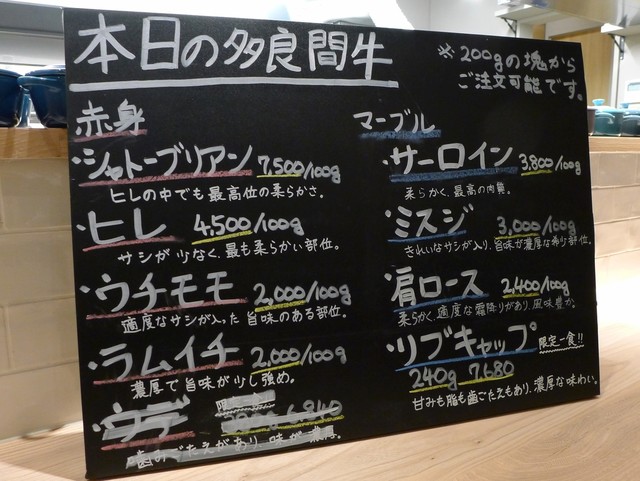 本日の多良間牛
※200gの塊から
ご注文可能です。
赤身
・シャトーブリアン 7,500/100g
ヒレの中でも最高位の柔らかさ。
・ヒレ 4,500/100g
サシが少なく、最も柔らかい部位。
・ウチモモ 2,000/100g
適度なサシが入った旨味のある部位。
・ラムイチ 2,000/100g
濃厚で旨味が少し強め。
・ウデ 限定一食
歯ごたえがあり、味が濃厚。
マーブル
・サーロイン 3,800/100g
柔らかく、最高の肉質。
・ミスジ 3,000/100g
きれいなサシが入り、旨味が濃厚な希少部位。
・肩ロース 2,400/100g
柔らかく、適度な霜降りがあり、風味豊か。
・リブキャップ 限定一食!!
240g 7680
甘みも脂も歯ごたえもあり、濃厚な味わい。